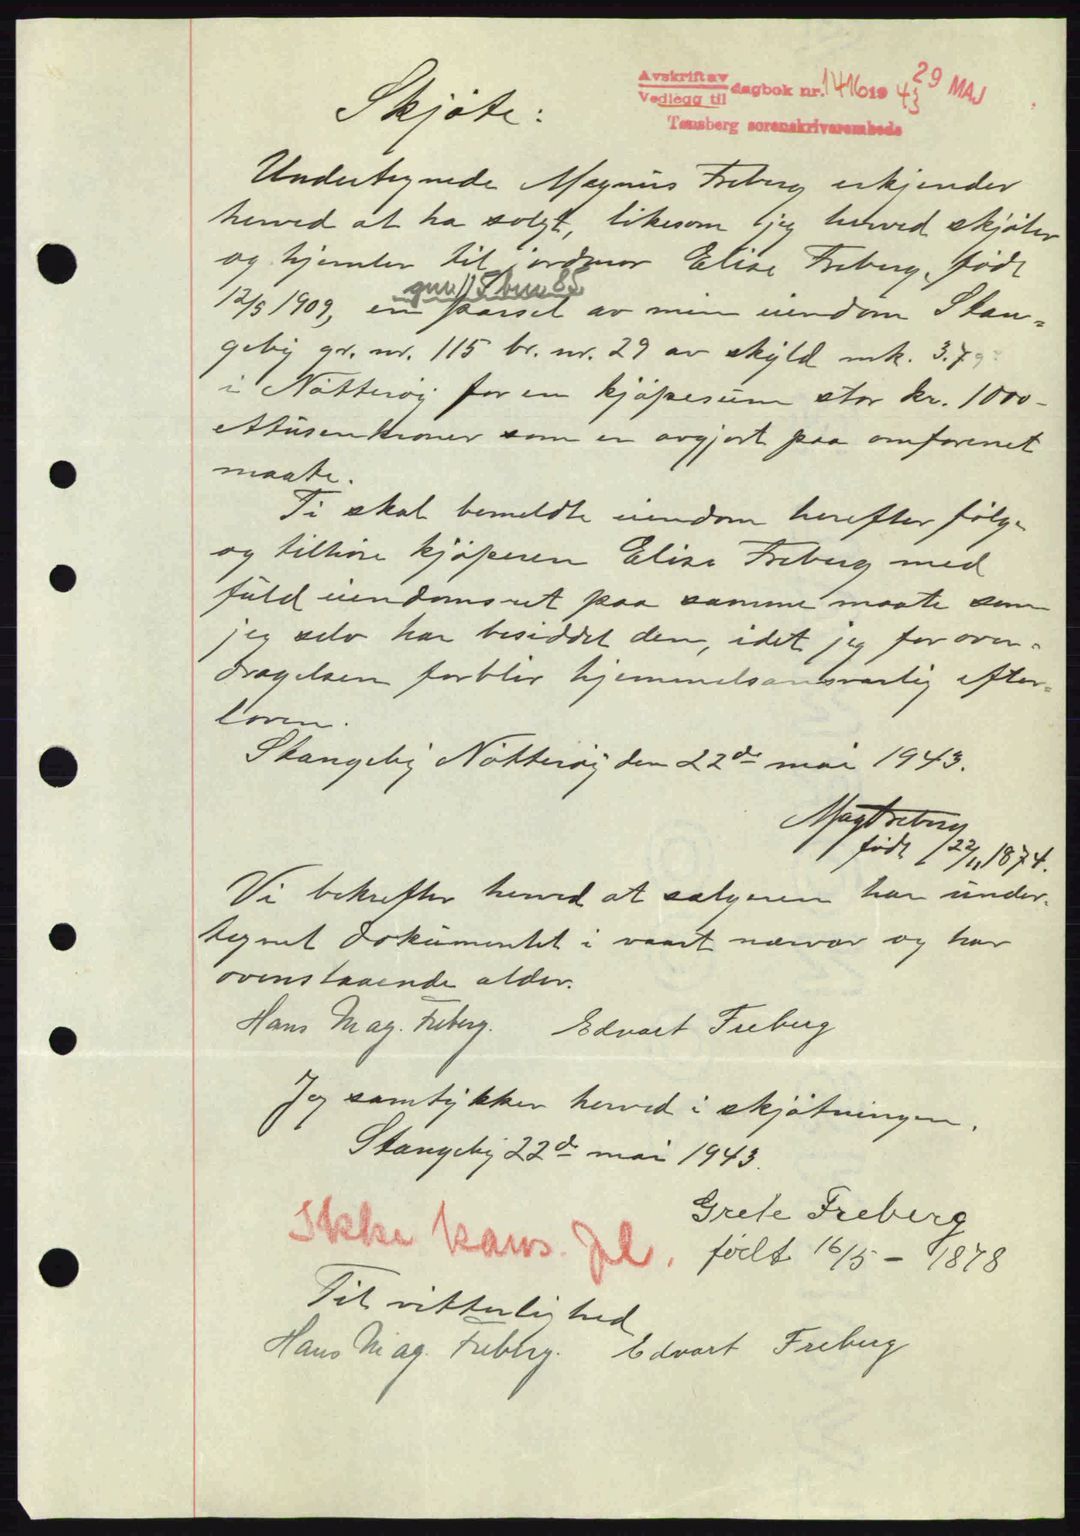 Avskrift av
Vedlegg til
dagbok nr. 1416 1943
29 MAJ
Tønsberg sorenskriverembede
Skjøte:
Undertegnede Magnus Freberg erkjender
herved at ha solgt, likesom jeg herved skjøter
og hjemler til jordmor Elise Freberg, født
gnr. 115 bnr. 85
12/5 1909, en parsel av min eiendom Stan=
geby gr. nr. 115 br. nr. 29 av skyld mk. 3.79
i Nøtterøy for en kjøpesum stor kr. 1000-
ettusenkroner som er avgjort paa omforenet
maate.
Ti skal bemeldte eiendom herefter følge
og tilhøre kjøperen Elise Freberg med
fuld eiendomsret paa samme maate som
jeg selv har besiddet den, idet jeg for over=
dragelsen forblir hjemmelsansvarlig efter=
loven.
Stangeby Nøtterøy den 22de mai 1943.
Mag Freberg
født 22/11 1874.
Vi bekrefter herved at selgeren har under-
tegnet dokumentet i vaart nærvær og har
ovenstaaende alder.
Hans Mag. Freberg. Edvart Freberg
Jeg samtykker herved i skjøtningen.
Stangeby 22de mai 1943.
Grete Freberg
født 16/5 - 1878
Ikke kans. pl.
Til vitterlighed
Hans Mag. Freberg. Edvart Freberg